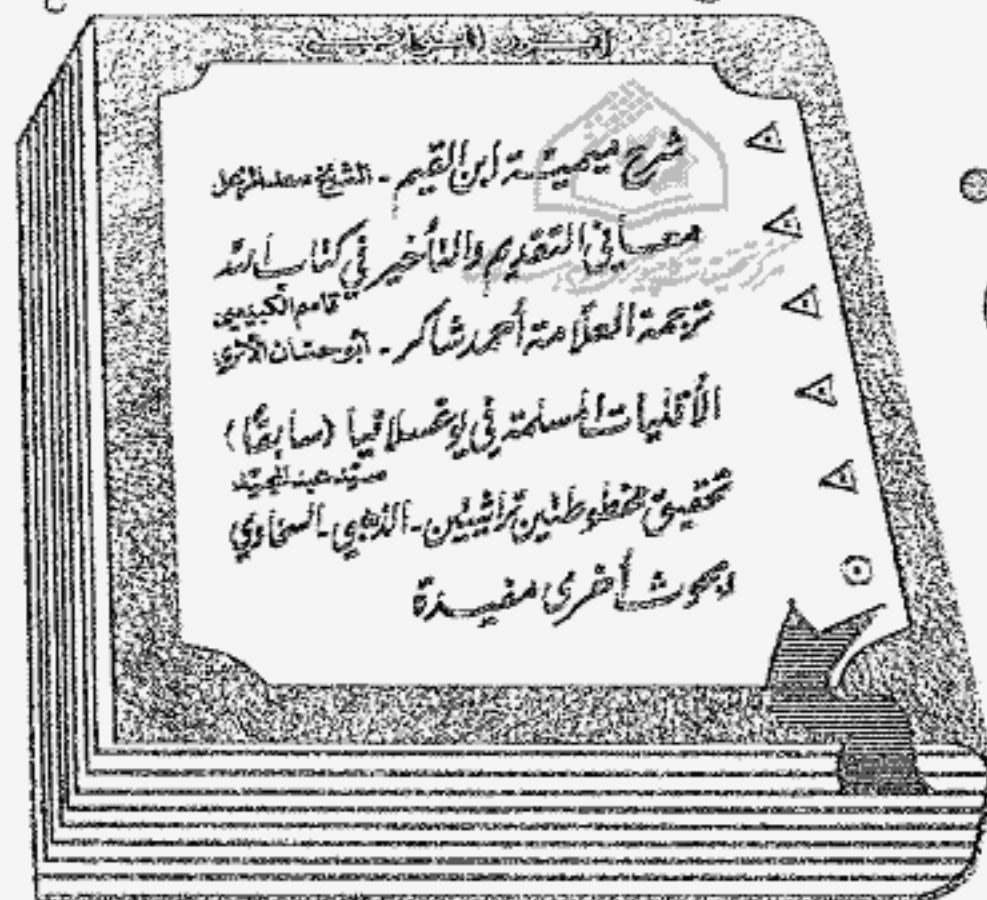 شرح ميمية ابن القيم - الشيخ
معاني التقديم والتأخير في كتاب الله
قاسم الكبيسي
ترجمة العلامة أحمد شاكر - أبو حسان الأثري
الأقليات المسلمة في يوغسلافيا (سابقًا)
سيد عبد المجيد
تحقيق مخطوطتين تراثيتين - الذهبي - السخاوي
وبحوث أخرى مفيدة